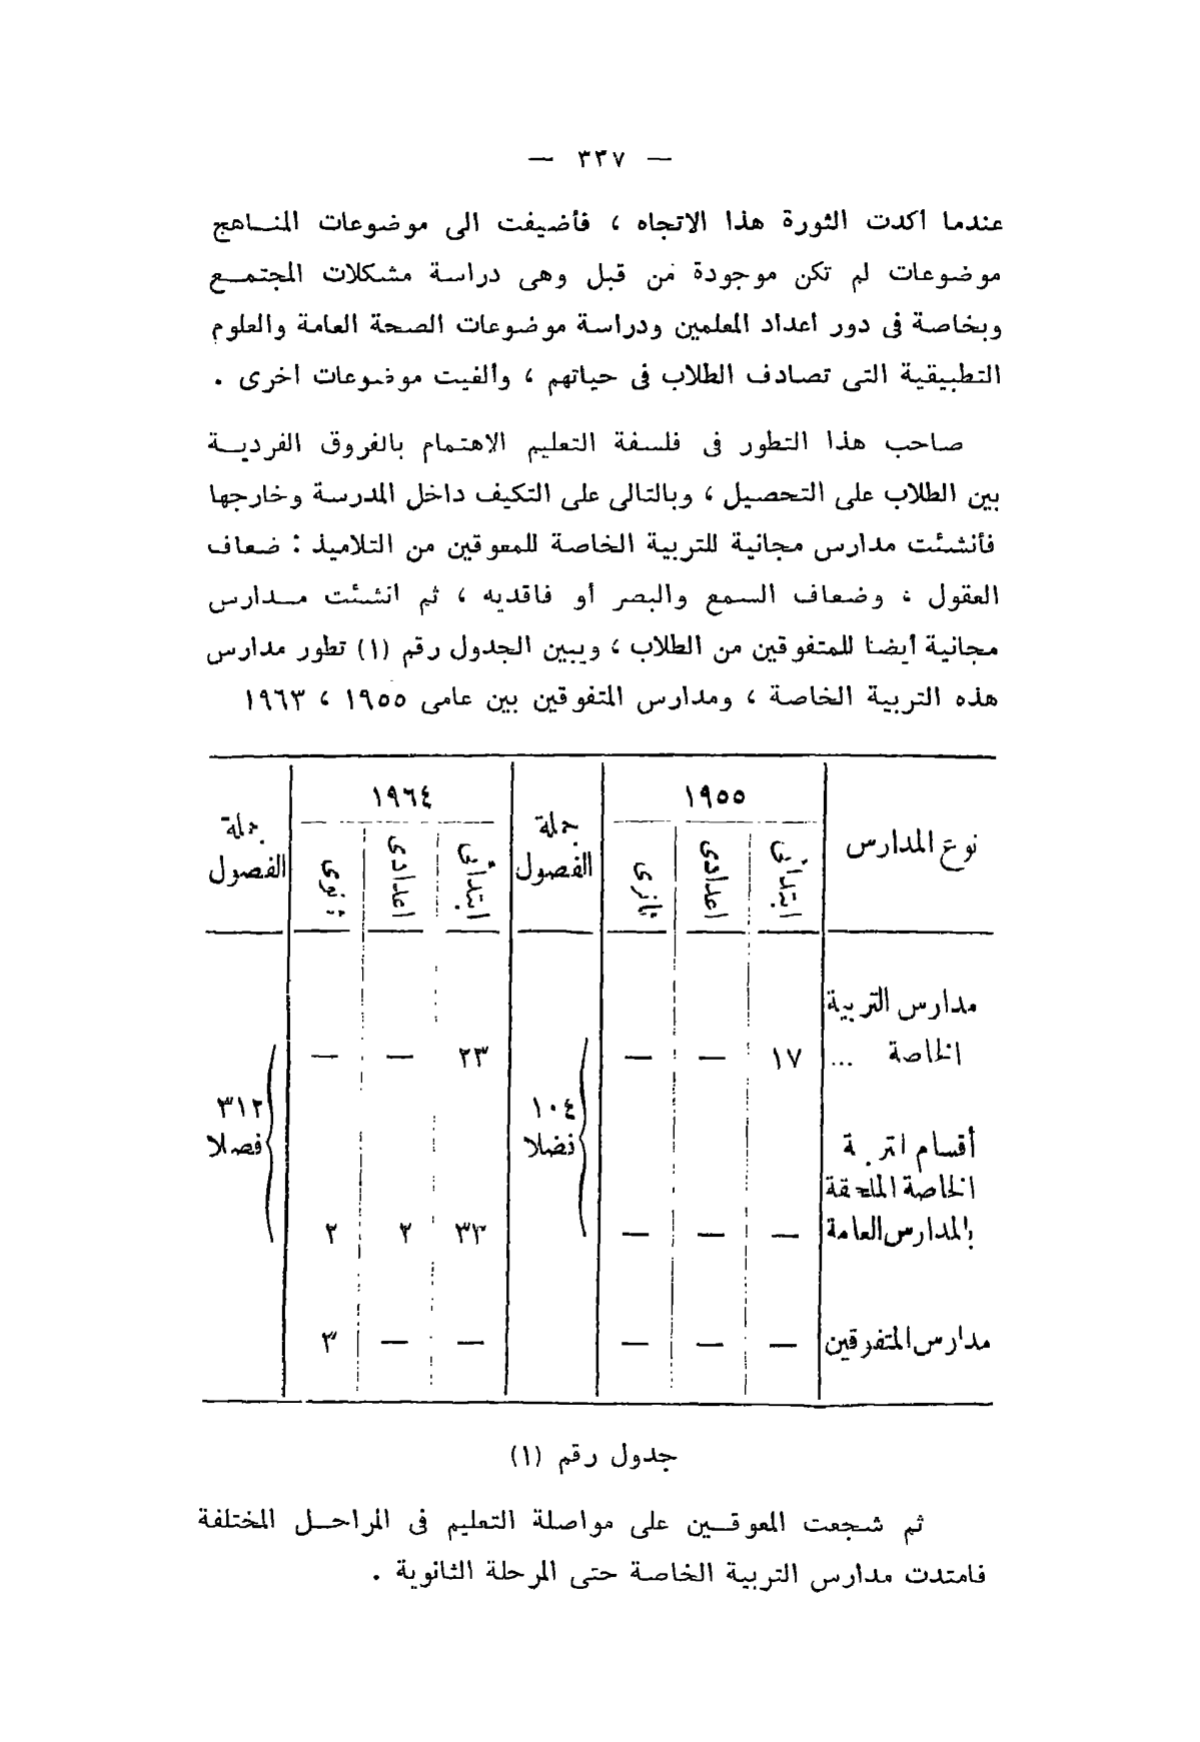 — ٣٣٧ —
عندما أكدت الثورة هذا الاتجاه ، فأضيفت الى موضوعات المناهج
موضوعات لم تكن موجودة من قبل وهى دراسة مشكلات المجتمع
وبخاصة فى دور اعداد المعلمين ودراسة موضوعات الصحة العامة والعلوم
التطبيقية التى تصادف الطلاب فى حياتهم ، وألغيت موضوعات أخرى .
صاحب هذا التطور فى فلسفة التعليم الاهتمام بالفروق الفردية
بين الطلاب على التحصيل ، وبالتالى على التكيف داخل المدرسة وخارجها
فأنشئت مدارس مجانية للتربية الخاصة للمعوقين من التلاميذ : ضعاف
العقول ، وضعاف السمع والبصر أو فاقديه ، ثم انشئت مدارس
مجانية أيضا للمتفوقين من الطلاب ، ويبين الجدول رقم (١) تطور مدارس
هذه التربية الخاصة ، ومدارس المتفوقين بين عامى ١٩٥٥ ، ١٩٦٣
نوع المدارس ١٩٥٥ جملة الفصول ١٩٦٤ جملة الفصول
ابتدائى اعدادى ثانوى ابتدائى اعدادى ثانوى
مدارس التربية
الخاصة ... ١٧ — — ٢٣ — —
١٠٤ فصلا ٣١٢ فصلا
أقسام التربية
الخاصة الملحقة
بالمدارس العامة — — — ٣٣ ٢ ٢
مدارس المتفوقين — — — — — ٣
جدول رقم (١)
ثم شجعت المعوقين على مواصلة التعليم فى المراحل المختلفة
فامتدت مدارس التربية الخاصة حتى المرحلة الثانوية .